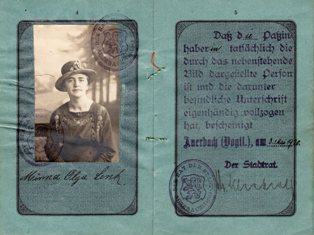 4
Minna Olga Lenk
5
Daß die Paßin
haberin tatsächlich die
durch das nebenstehende
Bild dargestellte Person
ist und die darunter
befindliche Unterschrift
eigenhändig vollzogen
hat, bescheinigt
Auerbach (Vogtl.), am
Der Stadtrat.